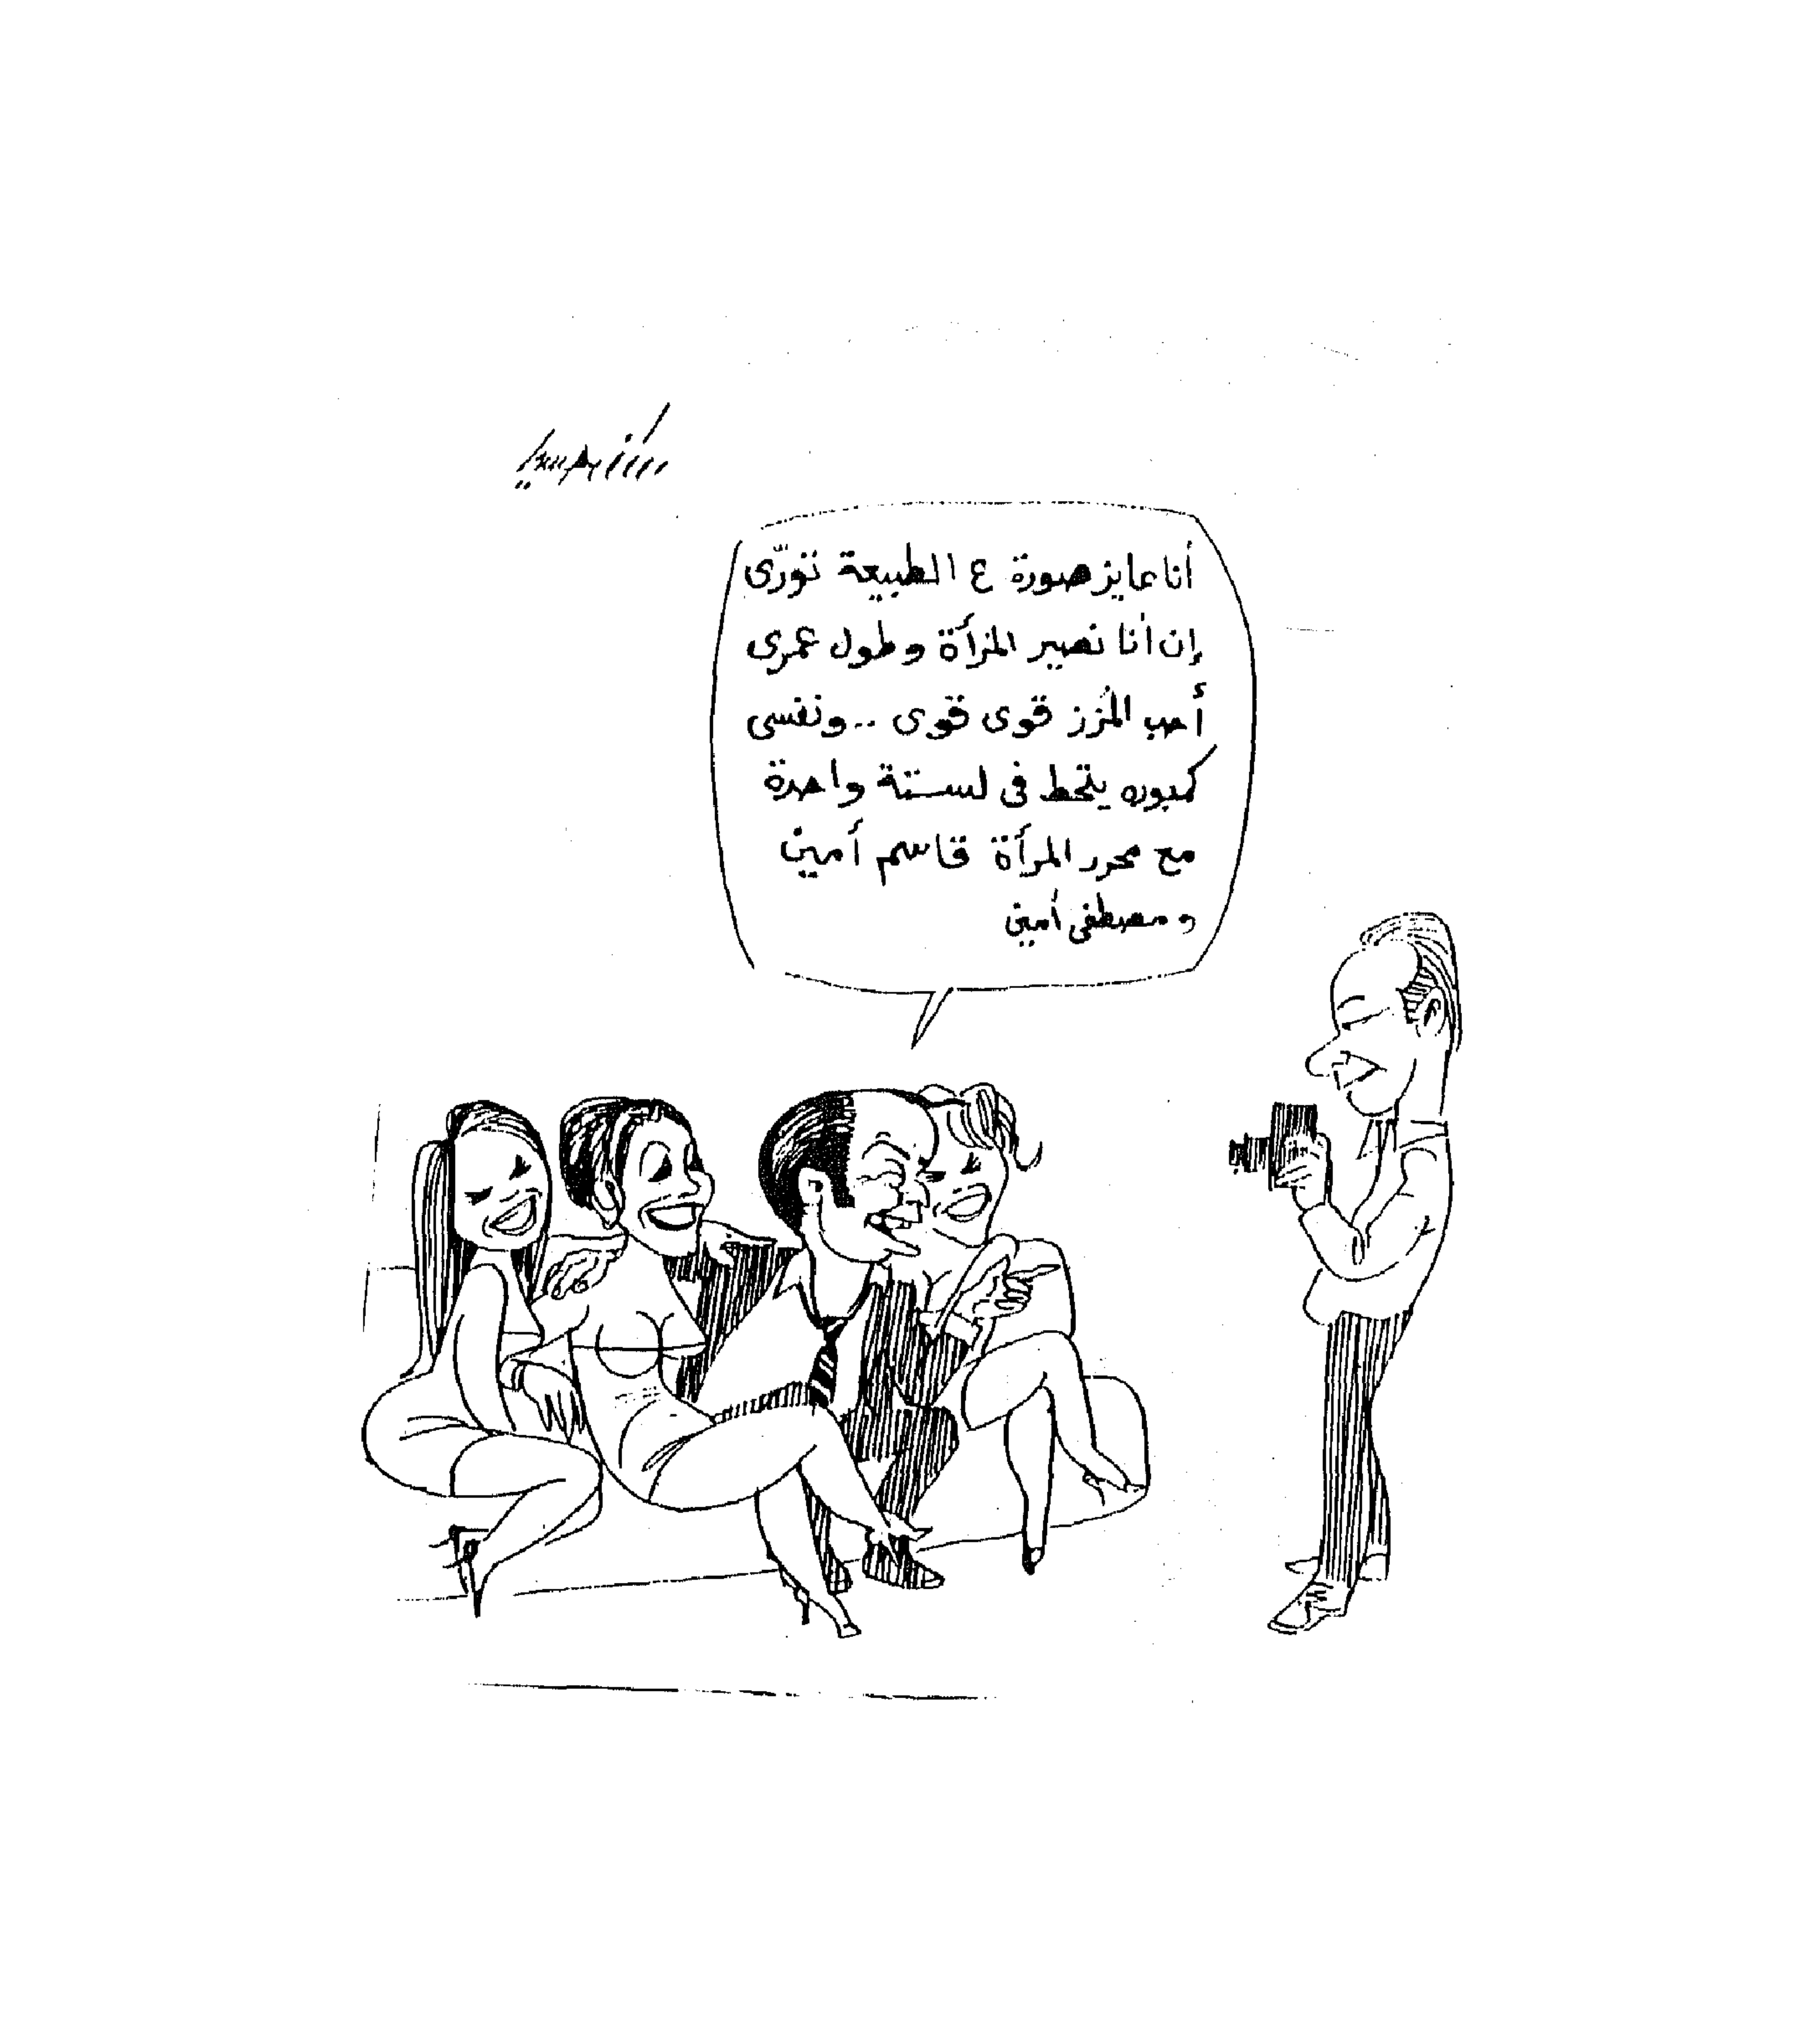 أنا عايز صورة ع الطبيعة تورّى
إن أنا نصير المرأة وطول عمرى
أحب المُزز قوى قوى .. ونفسى
كمبوره يتحط فى لستة واحدة
مع محرر المرأة قاسم أمين
ومصطفى أمين